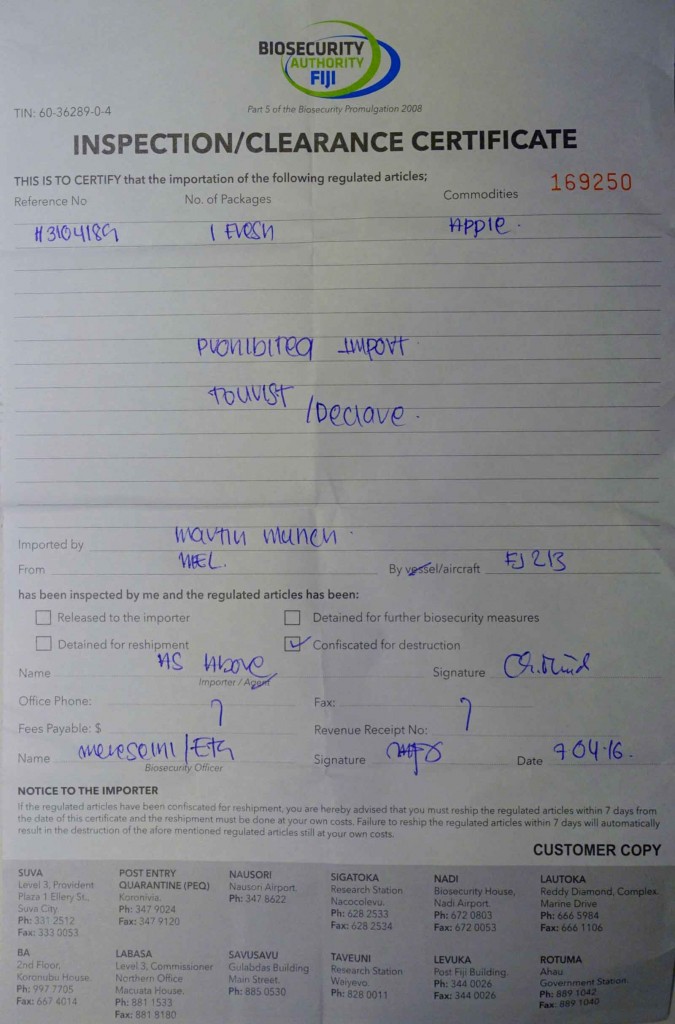 BIOSECURITY
AUTHORITY
FIJI
TIN: 60-36289-0-4
Part 5 of the Biosecurity Promulgation 2008
INSPECTION/CLEARANCE CERTIFICATE
THIS IS TO CERTIFY that the importation of the following regulated articles;
169250
Reference No No. of Packages Commodities
H3104189 1 Fresh Apple.
Prohibited Import.
Tourist
/Declare.
Imported by Martin Munch.
From MEL. By vessel/aircraft FJ 213
has been inspected by me and the regulated articles has been:
Released to the importer Detained for further biosecurity measures
Detained for reshipment Confiscated for destruction
Name As Above Signature
Importer / Agent
Office Phone: Fax:
Fees Payable: $ Revenue Receipt No:
Name Signature Date 9 04.16.
Biosecurity Officer
NOTICE TO THE IMPORTER
If the regulated articles have been confiscated for reshipment, you are hereby advised that you must reship the regulated articles within 7 days from
the date of this certificate and the reshipment must be done at your own costs. Failure to reship the regulated articles within 7 days will automatically
result in the destruction of the afore mentioned regulated articles still at your own costs.
CUSTOMER COPY
SUVA
Level 3, Provident
Plaza 1 Ellery St.,
Suva City.
Ph: 331 2512
Fax: 333 0053
POST ENTRY
QUARANTINE (PEQ)
Koronivia.
Ph: 347 9024
Fax: 347 9120
NAUSORI
Nausori Airport.
Ph: 347 8622
SIGATOKA
Research Station
Nacocolevu.
Ph: 628 2533
Fax: 628 2534
NADI
Biosecurity House,
Nadi Airport.
Ph: 672 0803
Fax: 672 0053
LAUTOKA
Reddy Diamond, Complex.
Marine Drive
Ph: 666 5984
Fax: 666 1106
BA
2nd Floor,
Koronubu House.
Ph: 997 7705
Fax: 667 4014
LABASA
Level 3, Commissioner
Northern Office
Macuata House.
Ph: 881 1533
Fax: 881 8180
SAVUSAVU
Gulabdas Building
Main Street.
Ph: 885 0530
TAVEUNI
Research Station
Waiyevo.
Ph: 828 0011
LEVUKA
Post Fiji Building.
Ph: 344 0026
Fax: 344 0026
ROTUMA
Ahau
Government Station.
Ph: 889 1042
Fax: 889 1040